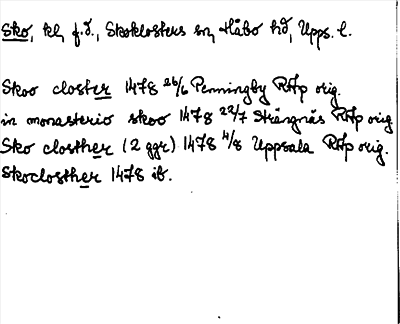 Sko, kl, f.d., Skoklosters sn, Håbo hd, Upps. l.
Skoo closter 1478 26/6 Penningby RAp orig.
in monasterio skoo 1478 22/7 Strängnäs RAp orig
Sko closther (2 ggr) 1478 4/8 Uppsala RAp orig.
Skoclosther 1478 ib.